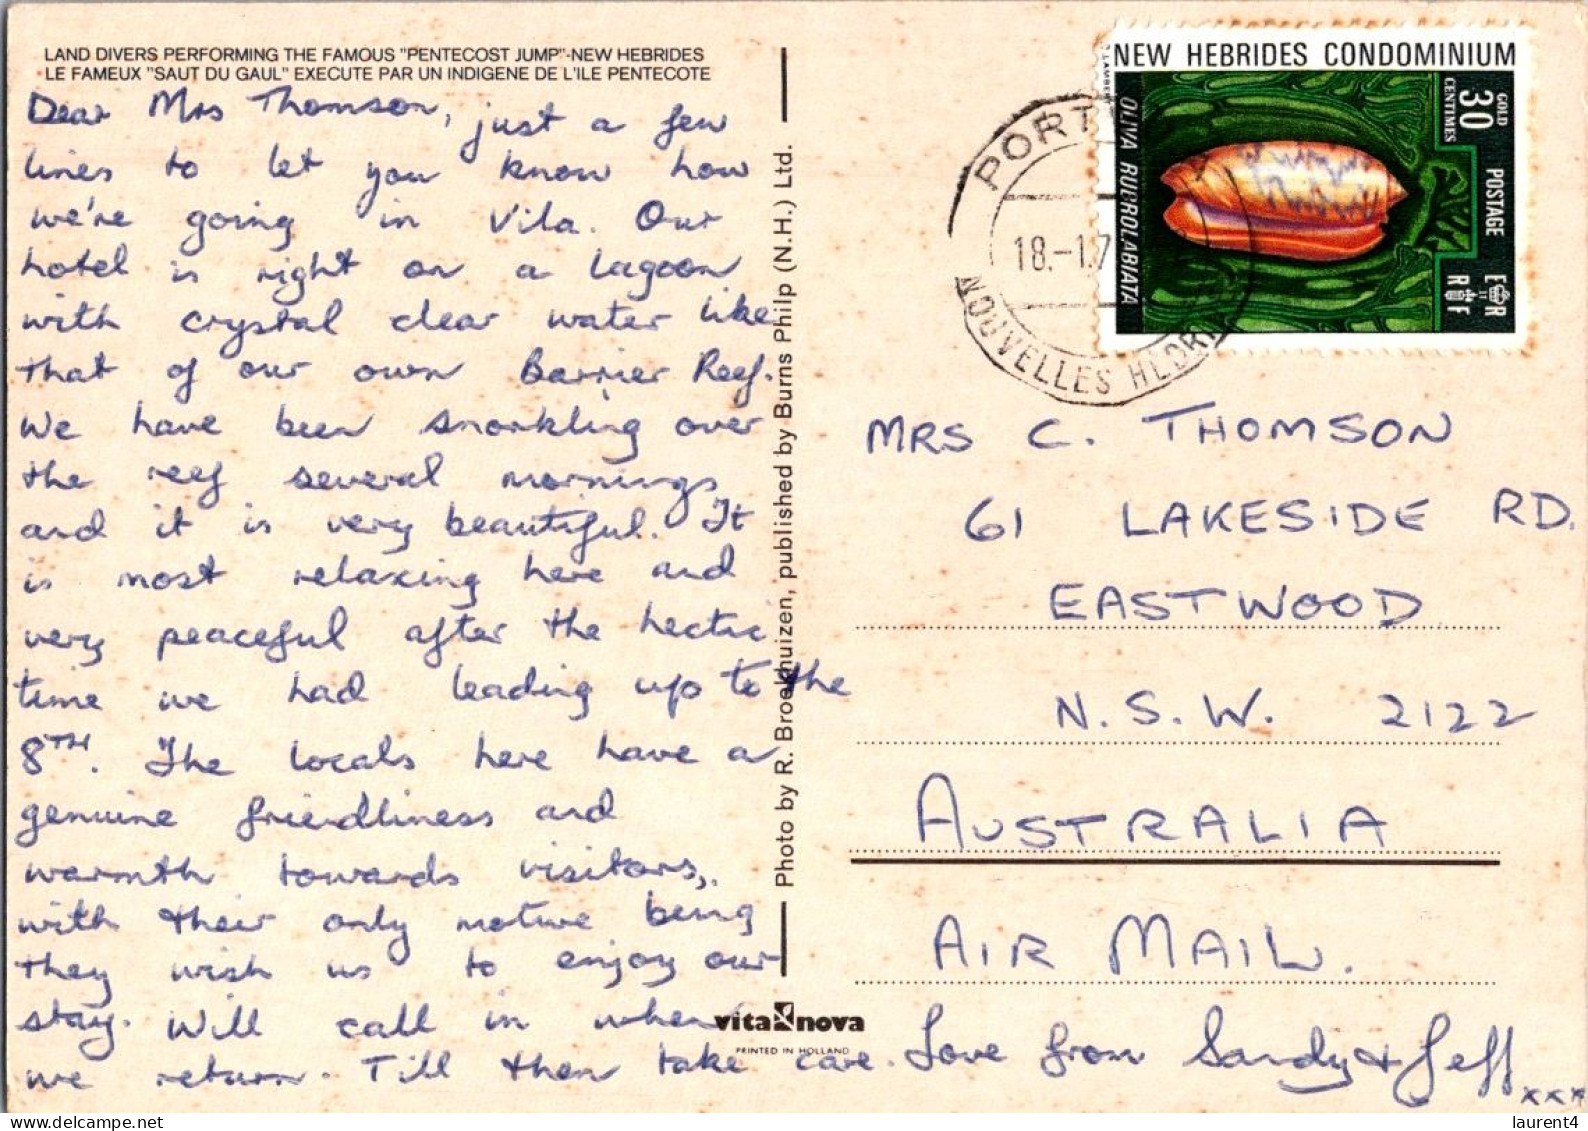 LAND DIVERS PERFORMING THE FAMOUS "PENTECOST JUMP"-NEW HEBRIDES
LE FAMEUX "SAUT DU GAUL" EXECUTE PAR UN INDIGENE DE L'ILE PENTECOTE
Dear Mrs Thomson, just a few
lines to let you know how
we're going in Vila. Our
hotel is right on a lagoon
with crystal clear water like
that of our own Barrier Reef.
We have been snorkling over
the reef several mornings
and it is very beautiful. It
is most relaxing here and
very peaceful after the hectic
time we had leading up to the
8TH. The locals here have a
genuine friendliness and
warmth towards visitors,
with their only motive being
they wish us to enjoy our
stay. Will call in when
we return. Till then take care. Love from Sandy & Jeff xxx
Photo by R. Brookhuizen, published by Burns Philp (N.H.) Ltd.
vita nova
PRINTED IN HOLLAND
NEW HEBRIDES CONDOMINIUM
OLIVA RUBROLABIATA
30
GOLD
CENTIMES
POSTAGE
E II R
R F
PORT
18.-1.7
NOUVELLES HEBRI
MRS C. THOMSON
61 LAKESIDE RD.
EASTWOOD
N.S.W. 2122
AUSTRALIA
AIR MAIL.
laurent4